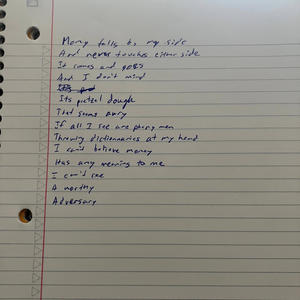 Money falls by my side
And never touches either side
It comes and goes
And I don't mind
Its pretzel dough
That seems
If all I see are phony men
Throwing dictionnaries at my head
I can't believe money
Has any meaning to me
I can't see
A worthy
Adversary